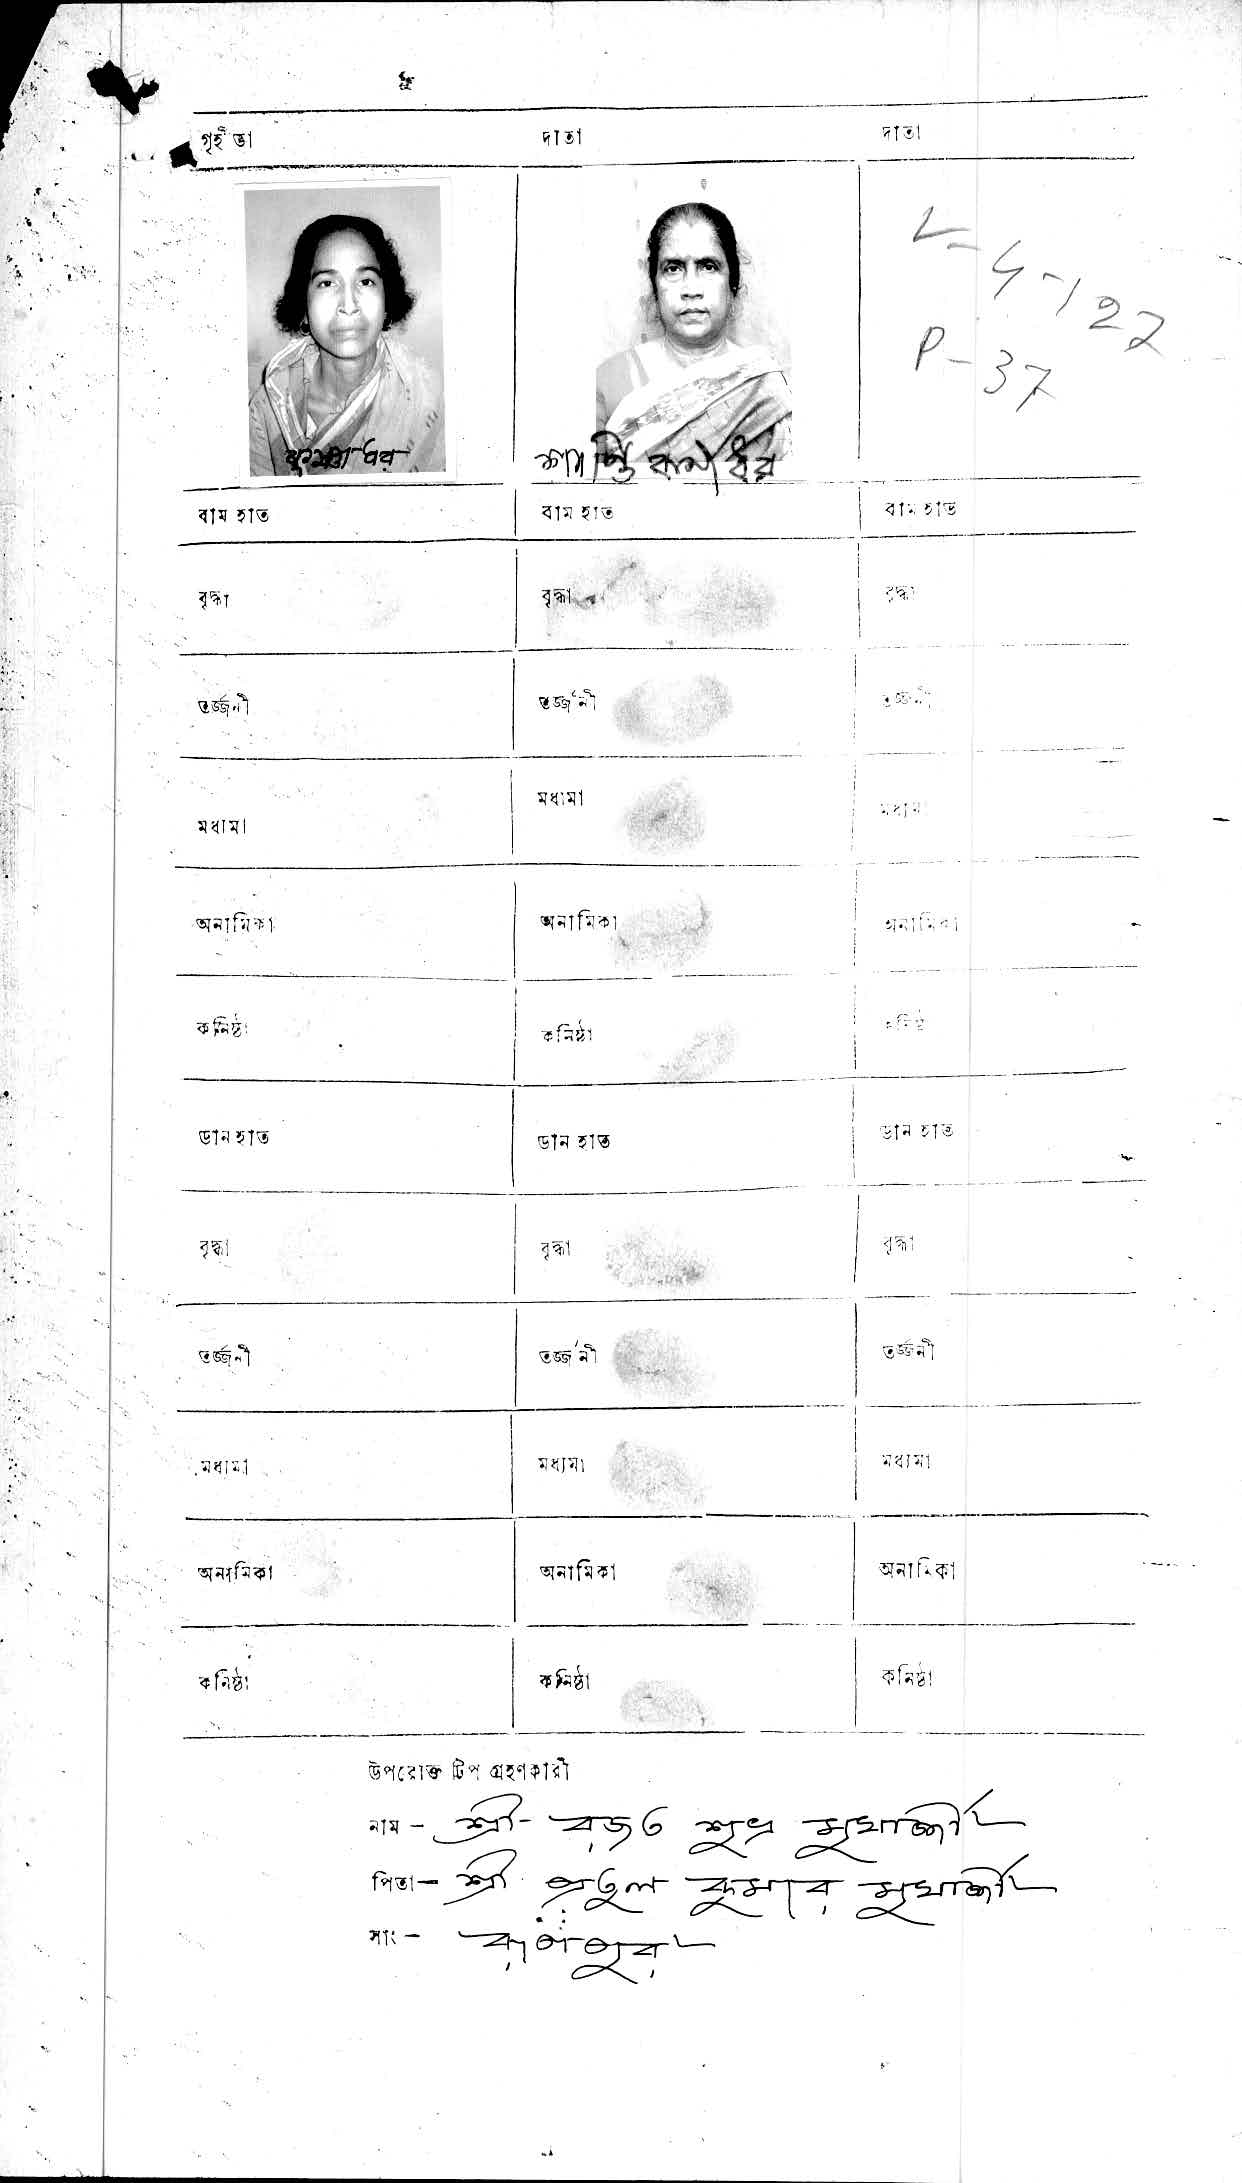 গৃহীতা দাতা দাতা
V-4-122
P-37
কুমকুম ধর শান্তি কনা ধর
বাম হাত বাম হাত বাম হাত
বৃদ্ধা বৃদ্ধা বৃদ্ধা
তর্জ্জনী তর্জ্জনী তর্জ্জনী
মধ্যমা মধ্যমা মধ্যমা
অনামিকা অনামিকা অনামিকা
কনিষ্ঠা কনিষ্ঠা কনিষ্ঠা
ডান হাত ডান হাত ডান হাত
বৃদ্ধা বৃদ্ধা বৃদ্ধা
তর্জ্জনী তর্জ্জনী তর্জ্জনী
মধ্যমা মধ্যমা মধ্যমা
অনামিকা অনামিকা অনামিকা
কনিষ্ঠা কনিষ্ঠা কনিষ্ঠা
উপরোক্ত টিপ গ্রহণকারী
নাম - শ্রী - রজত শুভ্র মুখার্জ্জী
পিতা - শ্রী প্রতুল কুমার মুখার্জ্জী
সাং - রূপপুর